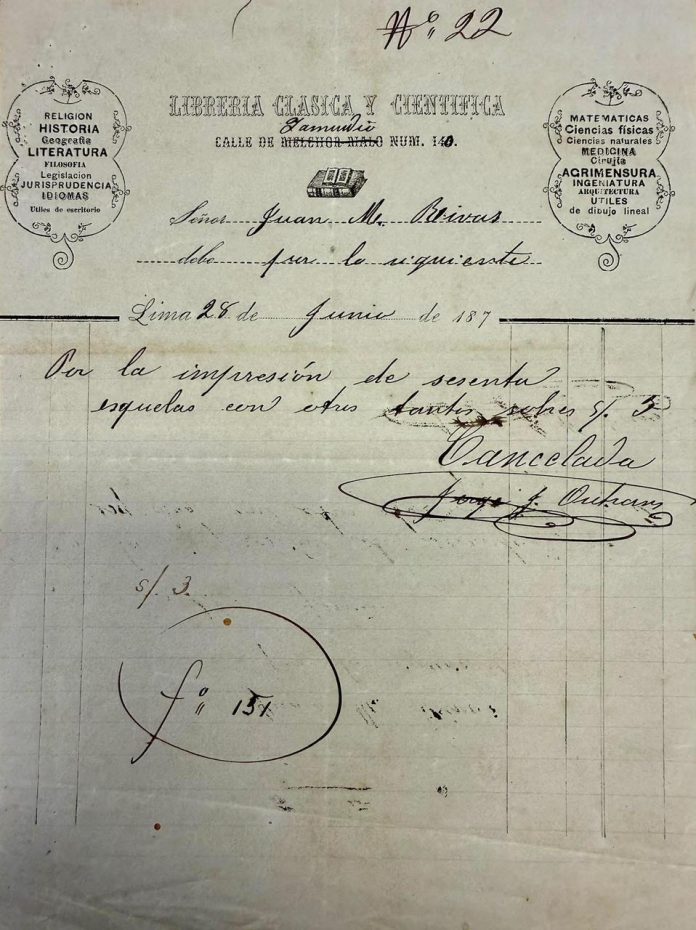 Nº 22
LIBRERIA CLASICA Y CIENTIFICA
Zamudio
CALLE DE MELCHOR MALO NUM. 140.
RELIGION
HISTORIA
Geografia
LITERATURA
FILOSOFIA
Legislacion
JURISPRUDENCIA
IDIOMAS
Utiles de escritorio
MATEMATICAS
Ciencias físicas
Ciencias naturales
MEDICINA
Cirujía
AGRIMENSURA
INGENIATURA
ARQUITECTURA
UTILES
de dibujo lineal
Señor Juan M. Rivas
debe por lo siguiente
Lima 28 de Junio de 187
Por la impresión de sesenta
esquelas con otros tantos sobres s/. 3
Cancelada
Jorge J.
s/. 3.
fº 151